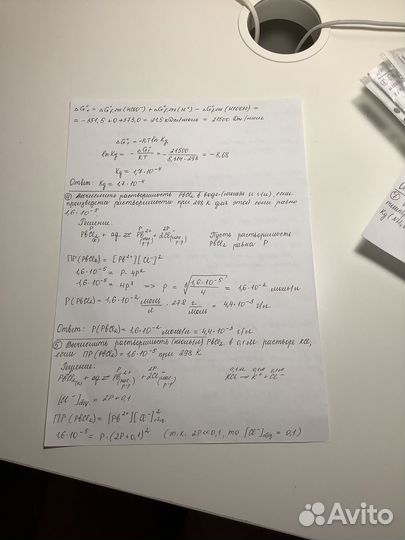 ΔG° = ΔG°f,m(HCOO⁻) + ΔG°f,m(H⁺) − ΔG°f,m(HCOOH) =
= −351,5 + 0 + 373,0 = 21,5 кДж/моль = 21500 Дж/моль
ΔG° = −RT ln Kд
ln Kд = − ΔG°/RT = − 21500/8,314·298 = −8,68
Kд = 1,7·10⁻⁴
Ответ: Kд = 1,7·10⁻⁴
④ Вычислить растворимость PbCl₂ в воде (моль/л и г/л), если
произведение растворимости при 298 К для этой соли равно
1,6·10⁻⁵
Решение
PbCl₂(к) + aq ⇄ Pb²⁺(нас. р-р) + 2Cl⁻(нас. р-р)
P P 2P
Пусть растворимость
PbCl₂ равна P
ПР(PbCl₂) = [Pb²⁺][Cl⁻]²
1,6·10⁻⁵ = P·4P²
1,6·10⁻⁵ = 4P³ ⟹ P = ∛(1,6·10⁻⁵/4) = 1,6·10⁻² моль/л
P(PbCl₂) = 1,6·10⁻² моль/л · 278 г/моль = 4,4 г/л
Ответ: P(PbCl₂) = 1,6·10⁻² моль/л = 4,4 г/л
⑤ Вычислить растворимость (моль/л) PbCl₂ в 0,1М растворе KCl,
если ПР(PbCl₂) = 1,6·10⁻⁵ при 298 К.
Решение:
PbCl₂(к) + aq ⇄ Pb²⁺(нас. р-р) + 2Cl⁻(нас. р-р)
P P 2P
0,1М 0,1М 0,1М
KCl → K⁺ + Cl⁻
[Cl⁻]общ = 2P + 0,1
ПР(PbCl₂) = [Pb²⁺][Cl⁻]²общ
1,6·10⁻⁵ = P·(2P+0,1)² (т.к. 2P<<0,1, то [Cl⁻]общ = 0,1)
Avito